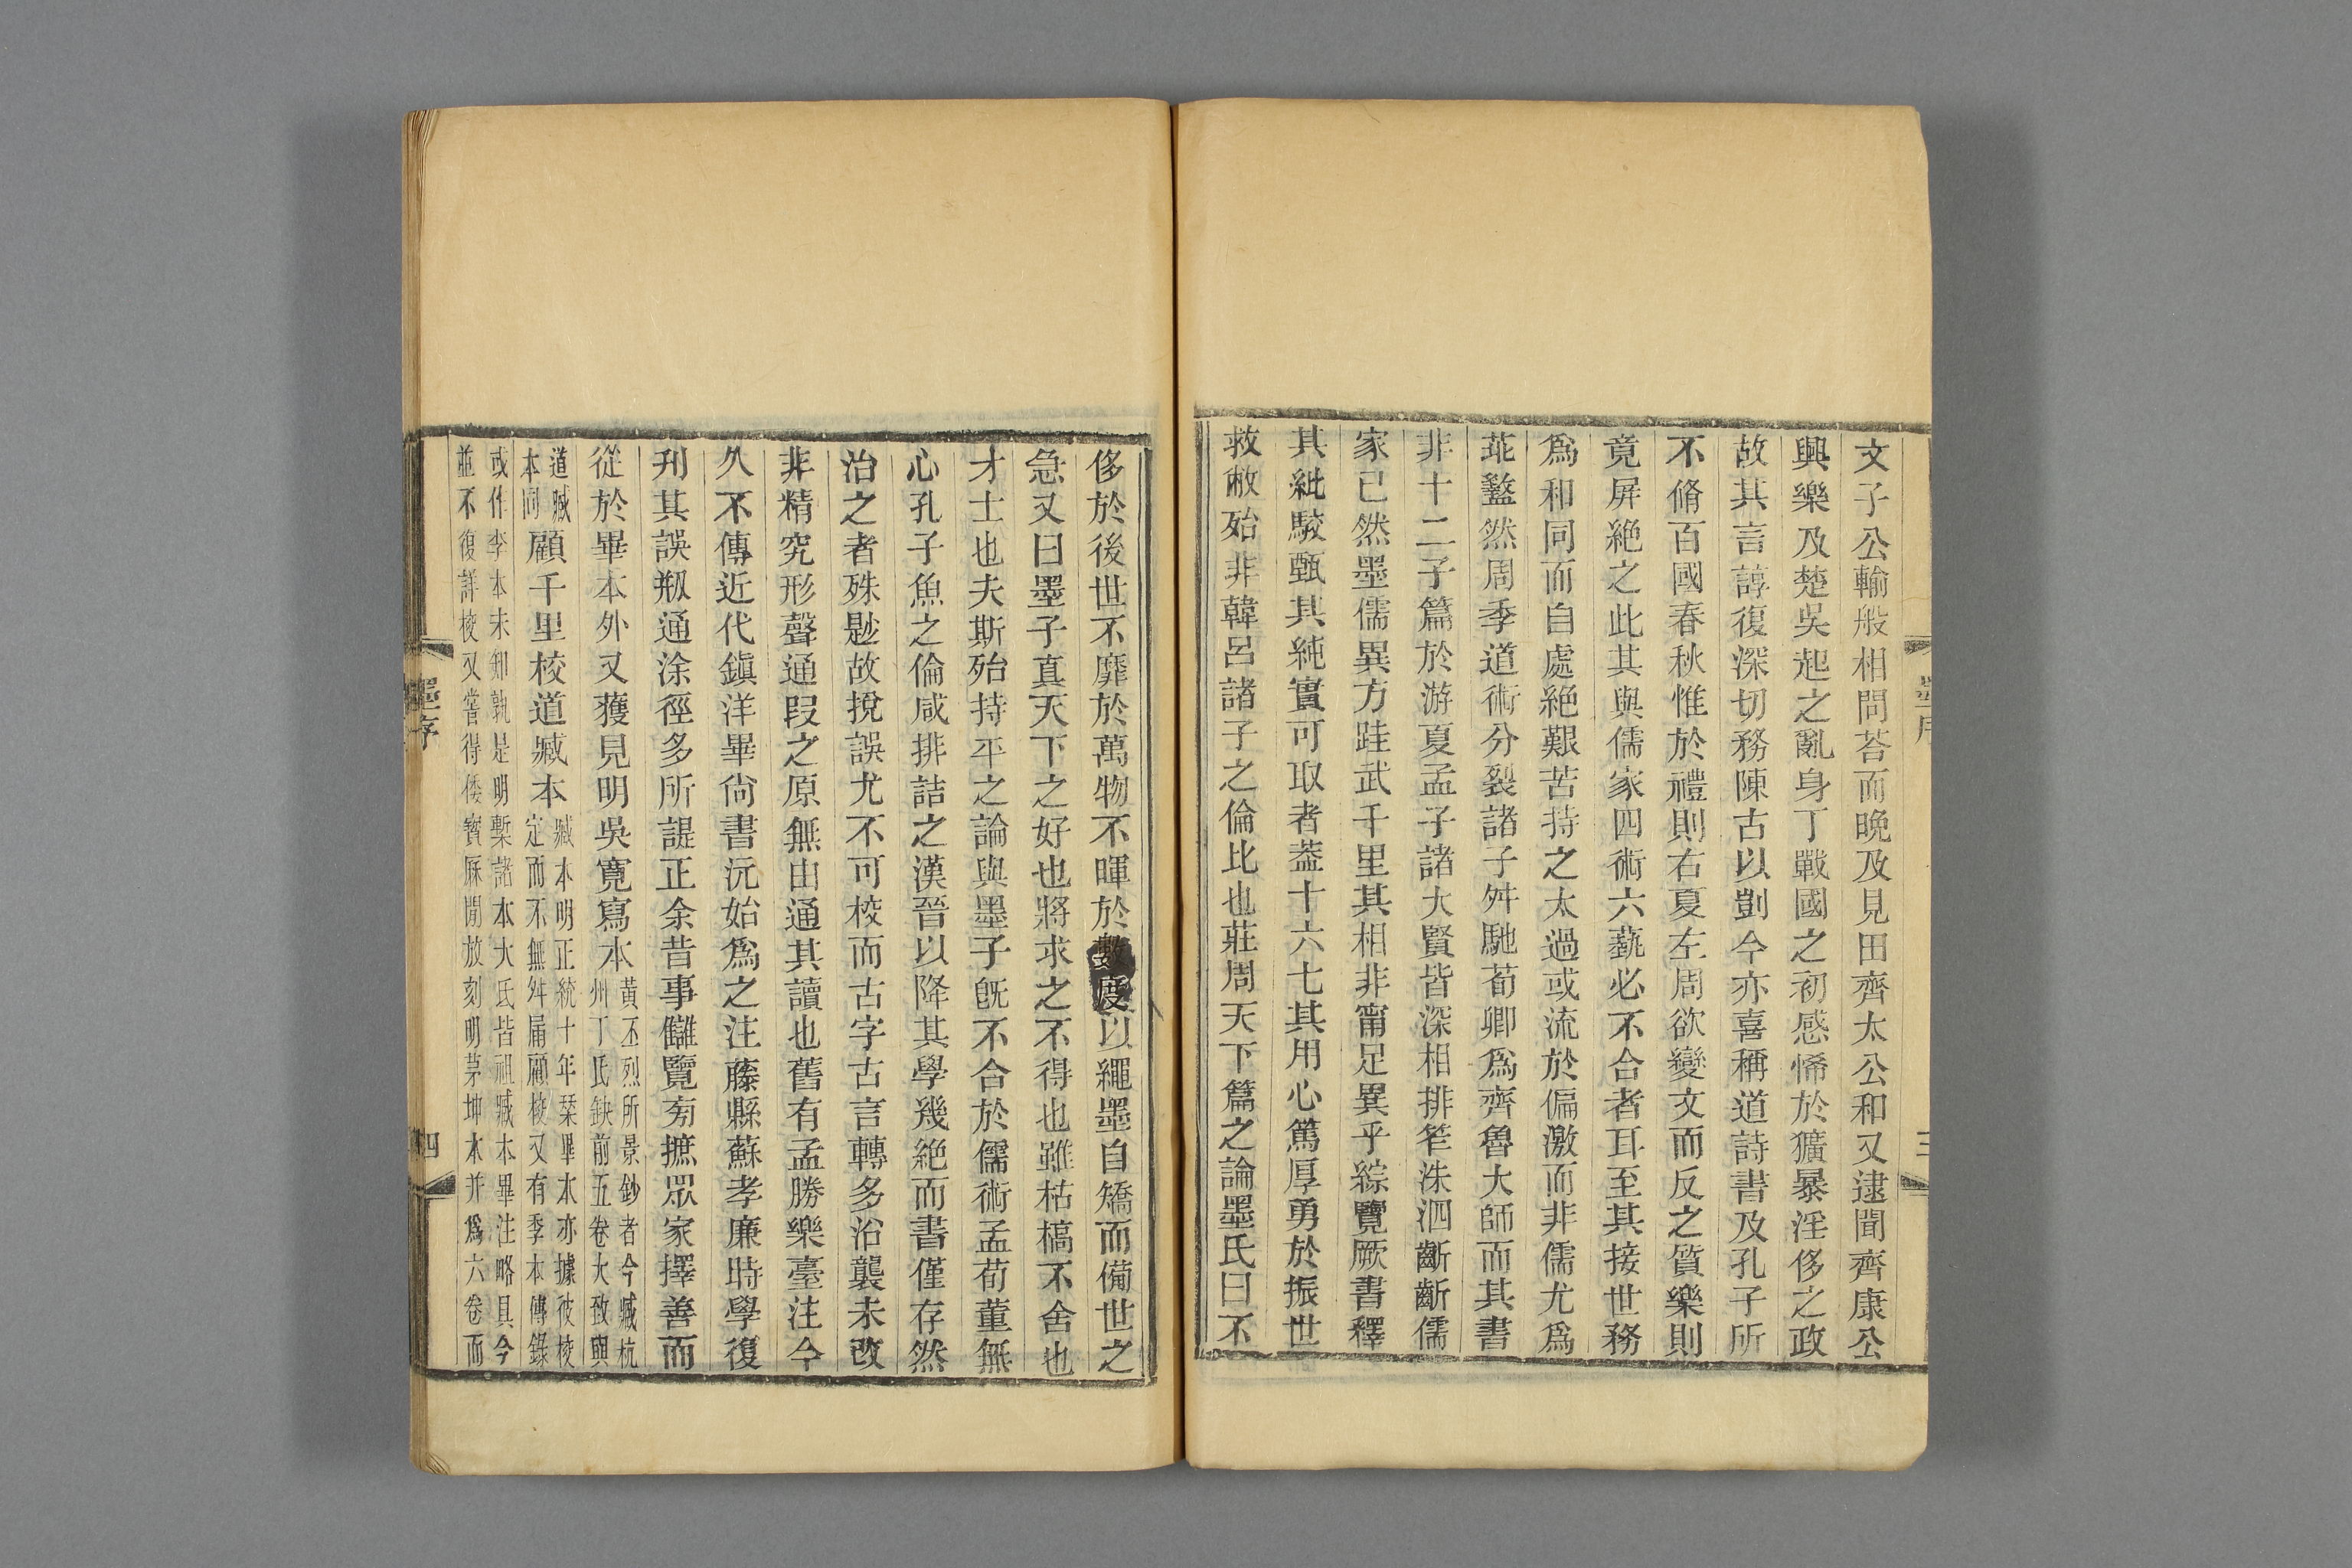 文子公輸般相問荅而晚及見田齊大公和又逮聞齊康公
興樂及楚吳起之亂身丁戰國之初感悕於獷暴淫侈之政
故其言諄復深切務陳古以剴今亦喜稱道詩書及孔子所
不脩百國春秋惟於禮則右夏左周欲變文而反之質樂則
竟屏絕之此其與儒家四術六蓺必不合者耳至其接世務
爲和同而自處絕艱苦持之太過或流於偏激而非儒尤爲
乖盭然周季道術分裂諸子舛馳荀卿爲齊魯大師而其書
非十二子篇於游夏孟子諸大賢皆深相排笮洙泗齗齗儒
家已然墨儒異方跬武千里其相非甯足異乎綜覽厥書釋
其紕駮甄其純實可取者葢十六七其用心篤厚勇於振世
救敝殆非韓呂諸子之倫比也莊周天下篇之論墨氏曰不
侈於後世不靡於萬物不暉於數度以繩墨自矯而備世之
急又曰墨子真天下之好也將求之不得也雖枯槁不舍也
才士也夫斯殆持平之論與墨子旣不合於儒術孟荀董無
心孔子魚之倫咸排詰之漢晉以降其學幾絕而書僅存然
治之者殊尟故捝誤尤不可校而古字古言轉多沿襲未改
非精究形聲通叚之原無由通其讀也舊有孟勝樂臺注今
久不傳近代鎮洋畢尙書沅始爲之注藤縣蘇孝廉時學復
刋其誤刱通涂徑多所諟正余昔事讎覽旁摭眾家擇善而
從於畢本外又獲見明吳寛寫本黃丕烈所景鈔者今臧杭
州丁氏缺前五卷大致與
道臧
本同顧千里校道臧本臧本明正統十年栞畢本亦據彼校
定而不無舛屚顧校又有季本傳錄
或作李本未知孰是明槧諸本大氐皆祖臧本畢注略具今
並不復詳校又嘗得倭寶厤閒放刻明茅坤本并爲六卷而
墨序
四